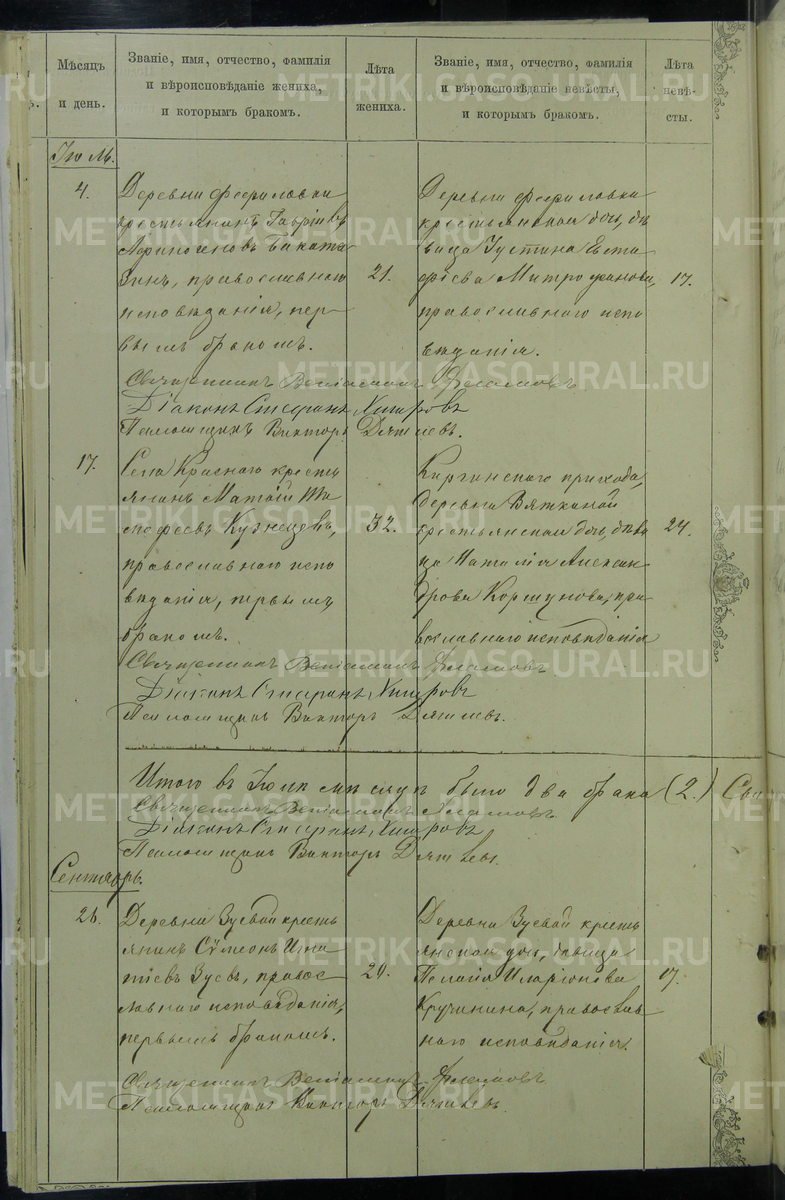 Мѣсяцъ и день.
Званіе, имя, отчество, фамилія и вѣроисповѣданіе жениха, и которымъ бракомъ.
Лѣта жениха.
Званіе, имя, отчество, фамилія и вѣроисповѣданіе невѣсты, и которымъ бракомъ.
Лѣта невѣсты.
Іюль.
4.
Деревни
крестьянинъ
православнаго
исповѣданія, пер-
вымъ бракомъ.
21.
Деревни
крестьянская дочь, дѣ
вица Устина Евста
фіева Митрофанова,
православнаго испо
вѣданія.
17.
Священникъ Веніаминъ
Діаконъ Стефанъ Хитровъ
Псаломщикъ Викторъ
17.
Села Краснаго кресть
янинъ Матѳій Ти
мофеевъ Кузнецовъ,
православнаго испо
вѣданія, первымъ
бракомъ.
32.
Киргинскаго прихода,
деревни Вяткиной
крестьянская дочь, дѣви
ца Наталія Алексан
дрова Коршунова, пра
вославнаго исповѣданія
24.
Священникъ Веніаминъ
Діаконъ Стефанъ Хитровъ
Псаломщикъ Викторъ
Итого въ Іюлѣ мѣсяцѣ было два брака (2.)
Священникъ Веніаминъ
Діаконъ Стефанъ Хитровъ
Псаломщикъ Викторъ
Сентябрь.
26.
Деревни Зуевой кресть
янинъ Сѵмеонъ Игна
тіевъ Зуевъ, правос
лавнаго исповѣданія,
первымъ бракомъ.
20.
Деревни Зуевой кресть
янская дочь, дѣвица
Пелагія Иларіонова
Кручинина, православ
наго исповѣданія.
17.
Священникъ Веніаминъ
Псаломщикъ Викторъ
METRIKI.GASO-URAL.RU